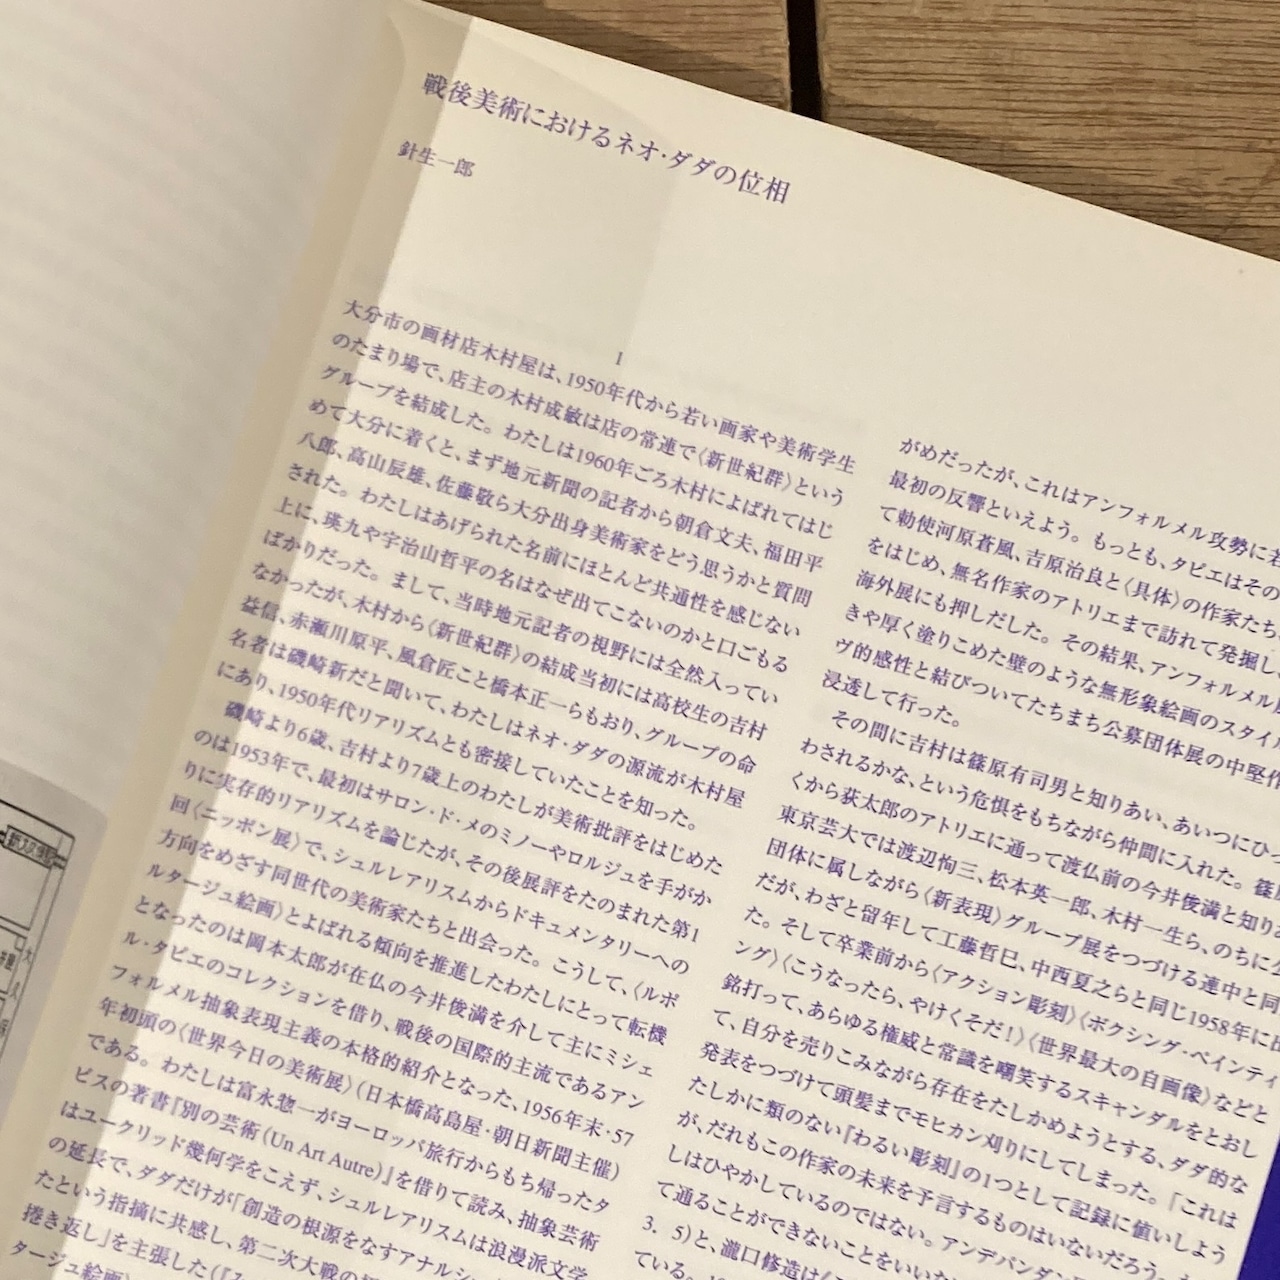 戦後美術におけるネオ・ダダの位相
針生一郎
1
大分市の画材店木村屋は、1950年代から若い画家や美術学生
のたまり場で、店主の木村成敏は店の常連で〈新世紀群〉という
グループを結成した。わたしは1960年ごろ木村によばれてはじ
めて大分に着くと、まず地元新聞の記者から朝倉文夫、福田平
八郎、高山辰雄、佐藤敬ら大分出身美術家をどう思うかと質問
された。わたしはあげられた名前にほとんど共通性を感じない
上に、瑛九や宇治山哲平の名はなぜ出てこないのかと口ごもる
ばかりだった。まして、当時地元記者の視野には全然入ってい
なかったが、木村から〈新世紀群〉の結成当初には高校生の吉村
益信、赤瀬川原平、風倉匠こと橋本正一らもおり、グループの命
名者は磯崎新だと聞いて、わたしはネオ・ダダの源流が木村屋
にあり、1950年代リアリズムとも密接していたことを知った。
磯崎より6歳、吉村より7歳上のわたしが美術批評をはじめた
のは1953年で、最初はサロン・ド・メのミノーやロルジュを手がか
りに実存的リアリズムを論じたが、その後展評をたのまれた第1
回〈ニッポン展〉で、シュルレアリスムからドキュメンタリーへの
方向をめざす同世代の美術家たちと出会った。こうして、〈ルポ
ルタージュ絵画〉とよばれる傾向を推進したわたしにとって転機
となったのは岡本太郎が在仏の今井俊満を介して主にミシェ
ル・タピエのコレクションを借り、戦後の国際的主流であるアン
フォルメル抽象表現主義の本格的紹介となった、1956年末・57
年初頭の〈世界今日の美術展〉（日本橋高島屋・朝日新聞主催）
である。わたしは富永惣一がヨーロッパ旅行からもち帰ったタ
ピスの著書『別の芸術（Un Art Autre）』を借りて読み、抽象芸術
はユークリッド幾何学をこえず、シュルレアリスムは浪漫派文学
の延長で、ダダだけが「創造の根源をなすアナルシ
たという指摘に共感し、第二次大戦の
捲き返し」を主張した（『み
タージュ絵画〉
がめだったが、これはアンフォルメル攻勢に
最初の反響といえよう。もっとも、タピエはその
て勅使河原蒼風、吉原治良と〈具体〉の作家たち
をはじめ、無名作家のアトリエまで訪れて発掘し、
海外展にも押しだした。その結果、アンフォルメル
きや厚く塗りこめた壁のような無形象絵画のスタイル
ヴ的感性と結びついてたちまち公募団体展の中堅作
浸透して行った。
その間に吉村は篠原有司男と知りあい、あいつにひっ
わされるかな、という危惧をもちながら仲間に入れた。篠
くから荻太郎のアトリエに通って渡仏前の今井俊満と知り
東京芸大では渡辺恂三、松本英一郎、木村一生ら、のちに公
団体に属しながら〈新表現〉グループ展をつづける連中と同
だが、わざと留年して工藤哲巳、中西夏之らと同じ1958年に
た。そして卒業前から〈アクション彫刻〉〈ボクシング・ペインティ
ング〉〈こうなったら、やけくそだ！〉〈世界最大の自画像〉などと
銘打って、あらゆる権威と常識を嘲笑するスキャンダルをとおし
て、自分を売りこみながら存在をたしかめようとする、ダダ的な
発表をつづけて頭髪までモヒカン刈りにしてしまった。「これは
たしかに類のない『わるい彫刻』の1つとして記録に値いしよう
が、だれもこの作家の未来を予言するものはいないだろう。
しはひやかしているのではない。アンデパンダン
て通ることができないことをいいた
3. 5）と、瀧口修造は
ている。